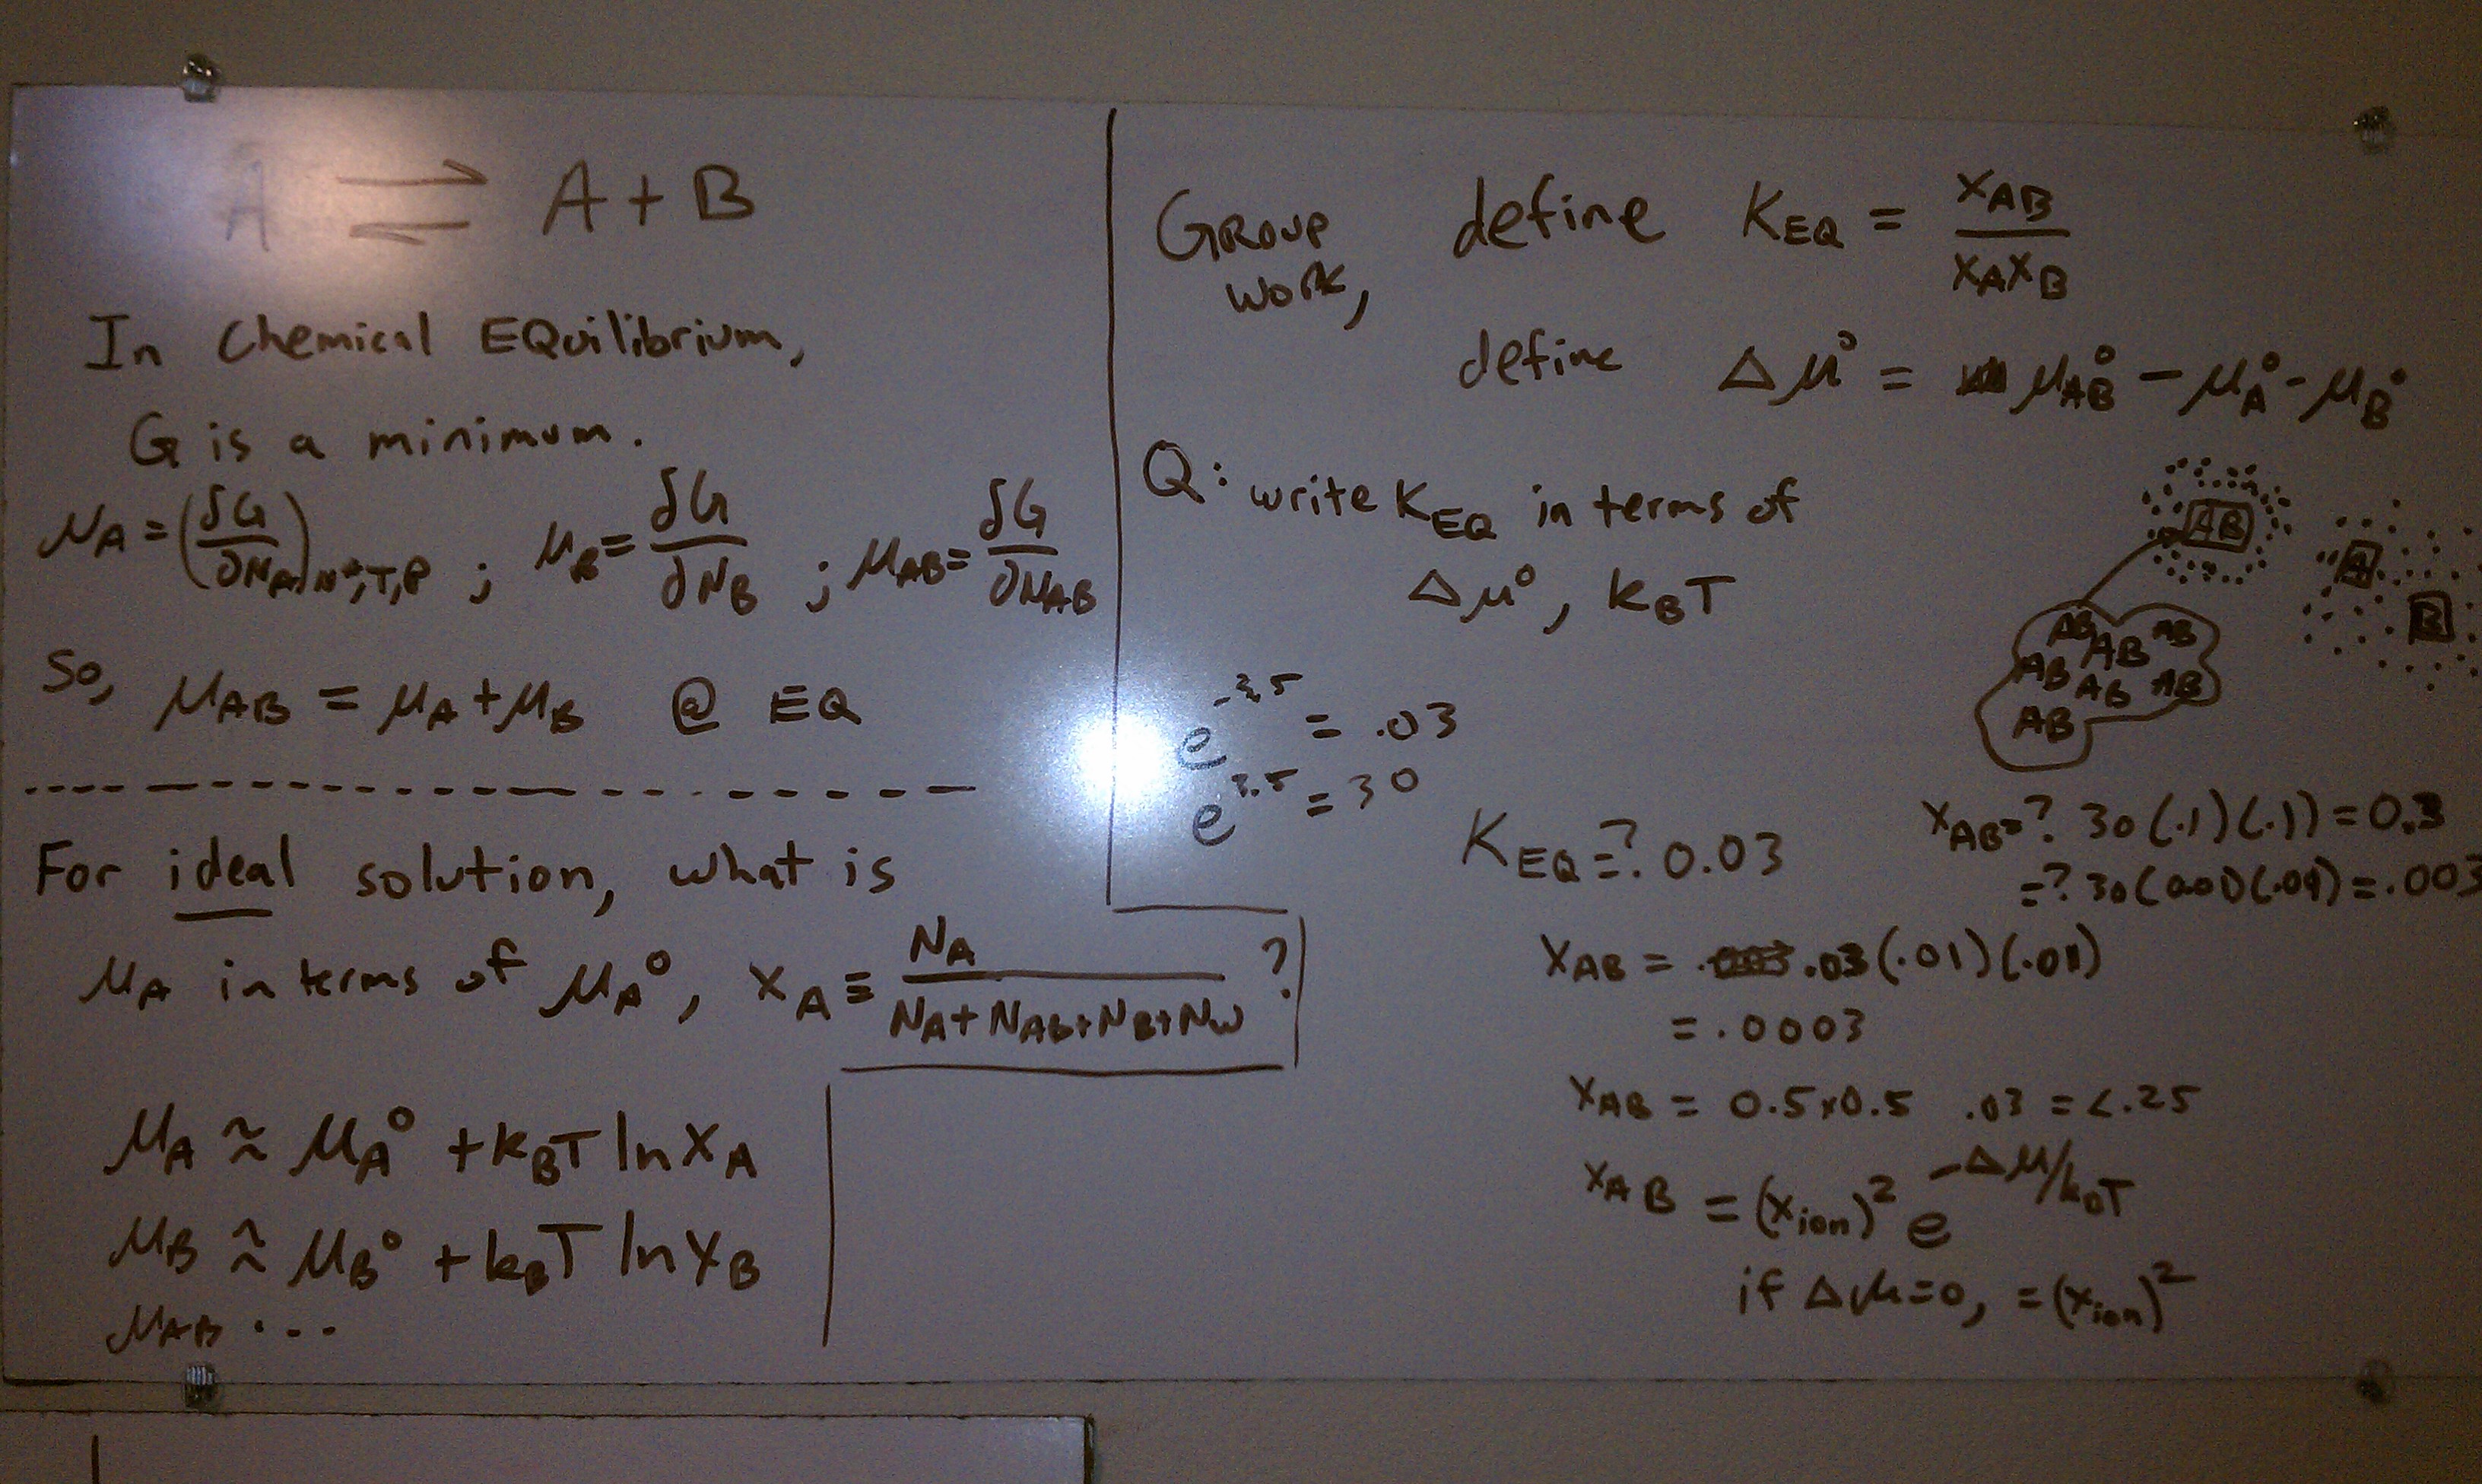 A ⇌ A + B
In Chemical EQuilibrium,
G is a minimum.
μ_A = (∂G/∂N_A)_N*,T,P ; μ_B = ∂G/∂N_B ; μ_AB = ∂G/∂N_AB
So, μ_AB = μ_A + μ_B @ EQ
For ideal solution, what is
μ_A in terms of μ_A°, x_A ≡ N_A/(N_A + N_AB + N_B + N_W) ?
μ_A ≈ μ_A° + k_BT ln x_A
μ_B ≈ μ_B° + k_BT ln x_B
μ_AB ...
GROUP work, define K_EQ = x_AB/(x_A x_B)
define Δμ° = μ_AB° - μ_A° - μ_B°
Q: write K_EQ in terms of
Δμ°, k_BT
AB
A
B
AB AB AB
AB AB AB
AB
e^-3.5 = .03
e^3.5 = 30
K_EQ =? 0.03
x_AB =? 30(.1)(.1) = 0.3
=? 30(0.01)(.01) = .003
x_AB = .03(.01)(.01)
= .0003
x_AB = 0.5x0.5 .03 = <.25
x_AB = (x_ion)² e^-Δμ/k_BT
if Δμ=0, = (x_ion)²